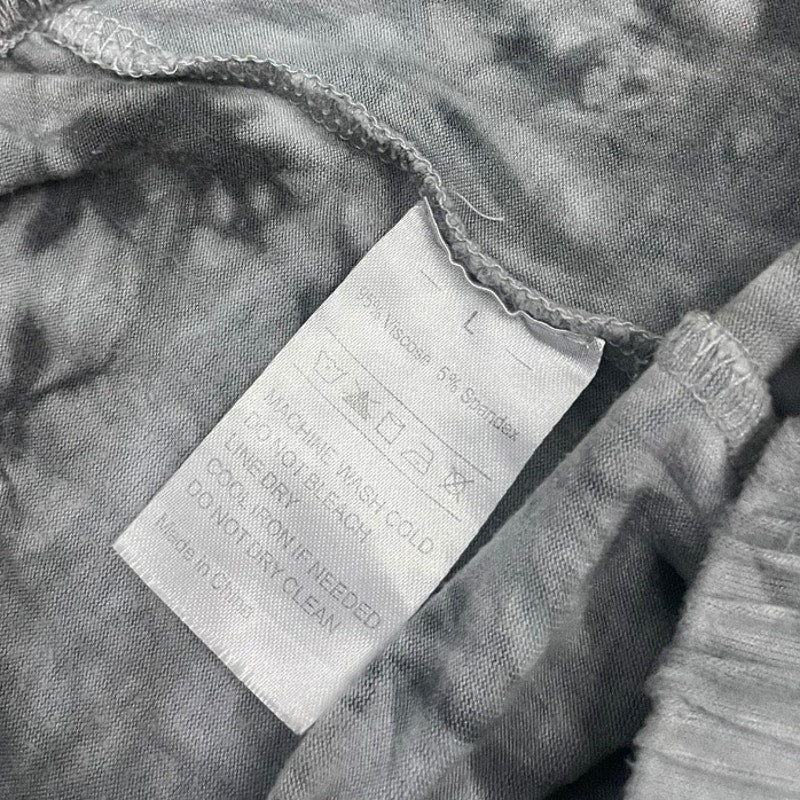 L
95% Viscose 5% Spandex
MACHINE WASH COLD
DO NOT BLEACH
LINE DRY
COOL IRON IF NEEDED
DO NOT DRY CLEAN
Made in China